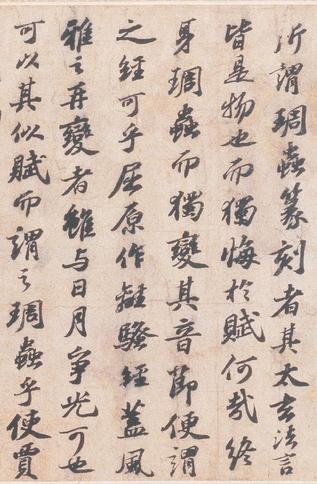 所謂琱蟲篆刻者其太玄法言
皆是物也而獨悔於賦何哉終
身琱蟲而獨變其音節便謂
之經可乎屈原作離騷經蓋風
雅之再變者雖与日月爭光可也
可以其似賦而謂之琱蟲乎使賈